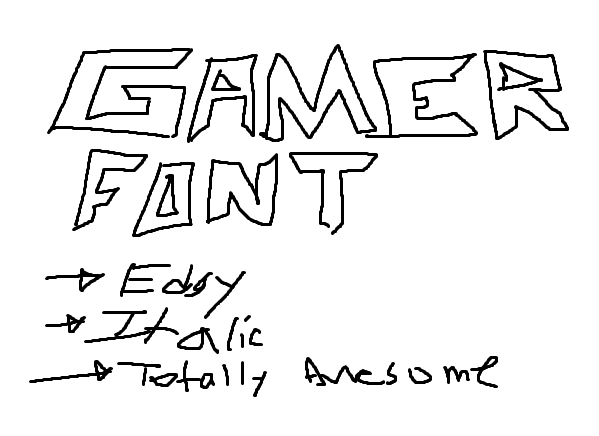 GAMER
FONT
→ Edgy
→ Italic
→ Totally Awesome